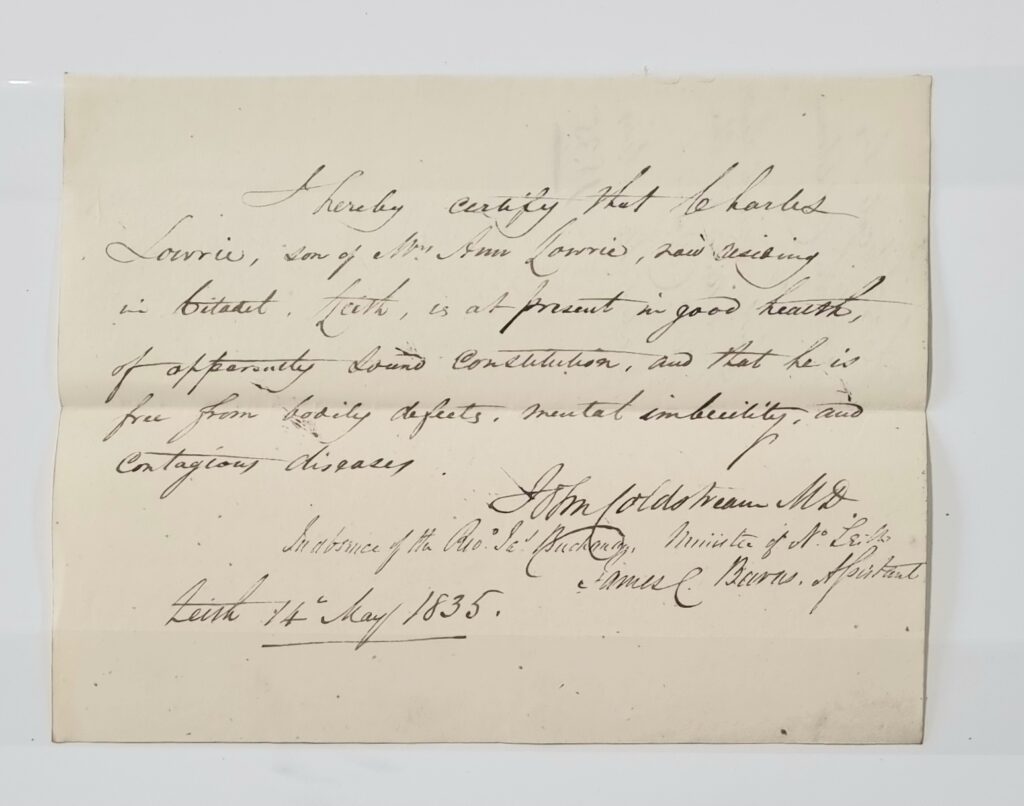 I hereby certify that Charles
Lowrie, son of Mrs Ann Lowrie, now residing
in Citadel, Leith, is at present in good health,
of apparently sound constitution, and that he is
free from bodily defects, mental imbecility, and
contagious diseases.
John Coldstream M.D.
In absence of the Revd. Jas. Buchanan, Minister of No. Leith
James C. Burns. Assistant
Leith 14th May 1835.